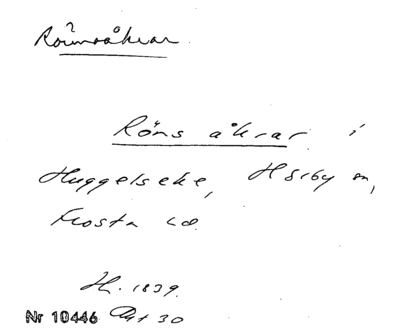 Rönsåkrar
Röns åkrar i
Huggelseke, Hörby sn,
Frosta hd.
H. 1839.
Nr 10446 Akt 30